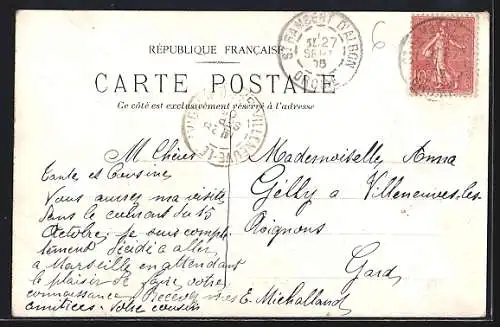 RÉPUBLIQUE FRANÇAISE
CARTE POSTALE
Ce côté est exclusivement réservé à l'adresse
ST RAMBERT D'ALBON
27
SEPT
05
DROME
10c
6
VILLENEUVE-LE
M Chères
Tante et Cousines
Vous aurez ma visite
dans le courant du 15
Octobre, je suis complè
tement décidé a aller
a Marseille en attendant
le plaisir de faire votre
connaissance Recevez mes
amitiées. Votre cousin
E. Michalland
Mademoiselle Anna
Gelly a Villeneuve-les-
Avignons
Gard